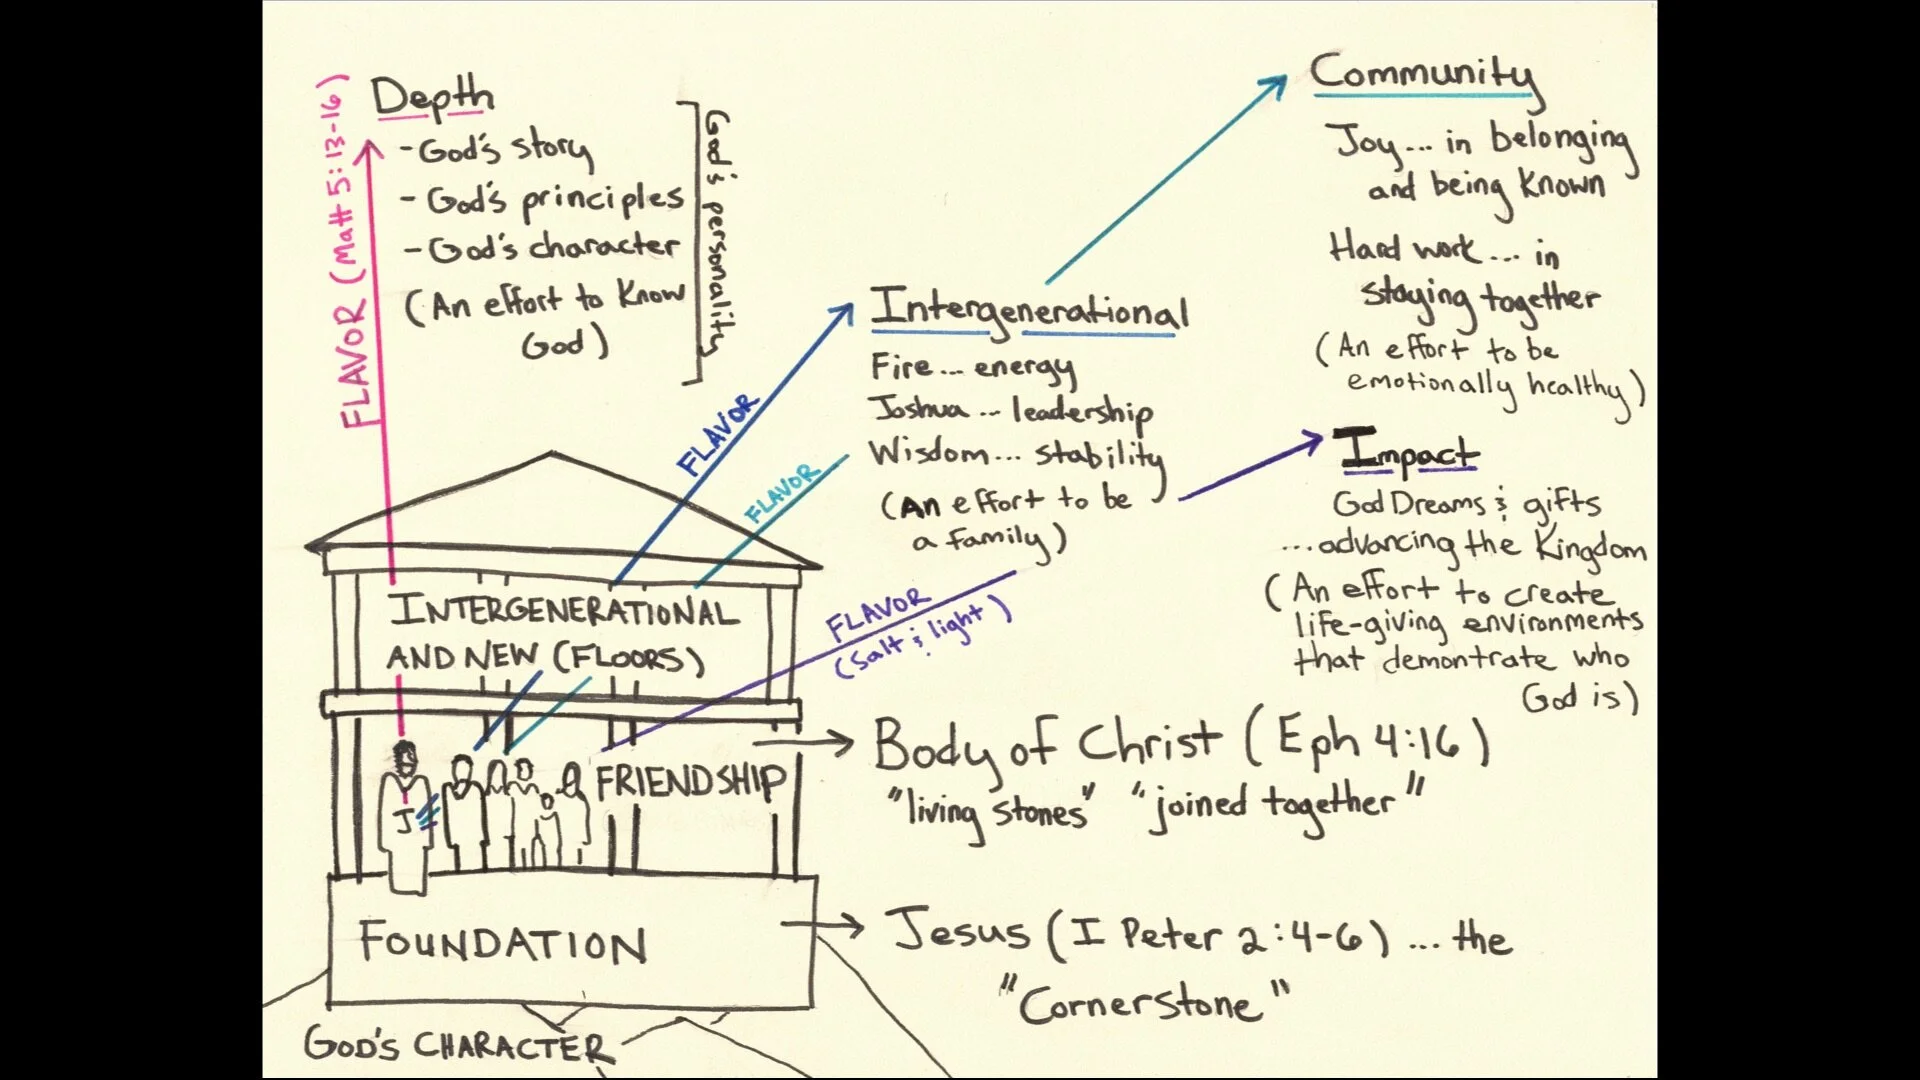 FLAVOR (Matt 5:13-16)
Depth
- God's story
- God's principles
- God's character
(An effort to Know
God)
God's personality
FLAVOR
FLAVOR
Intergenerational
Fire... energy
Joshua... leadership
Wisdom... stability
(An effort to be
a family)
Community
Joy... in belonging
and being known
Hard work... in
staying together
(An effort to be
emotionally healthy)
Impact
God Dreams & gifts
...advancing the Kingdom
(An effort to create
life-giving environments
that demontrate who
God is)
FLAVOR
(Salt & light)
INTERGENERATIONAL
AND NEW (FLOORS)
J
FRIENDSHIP
Body of Christ (Eph 4:16)
"living stones" "joined together"
FOUNDATION
Jesus (I Peter 2:4-6) ... the
"Cornerstone"
GOD'S CHARACTER